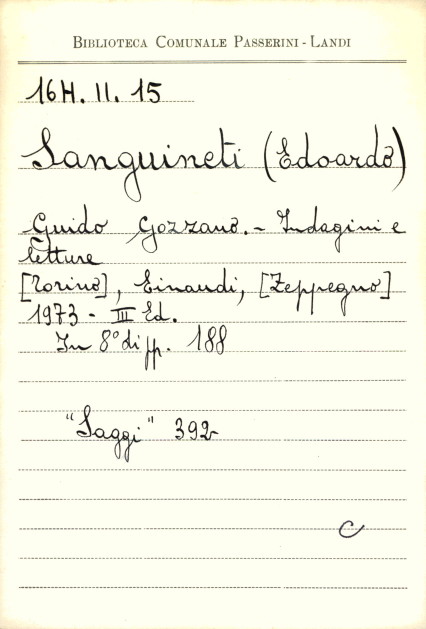 BIBLIOTECA COMUNALE PASSERINI - LANDI
16H. II. 15
Sanguineti (Edoardo)
Guido Gozzano. - Indagini e
letture
[Torino], Einaudi, [Zeppegno]
1973 - III Ed.
In 8° di pp. 188
"Saggi" 392
C